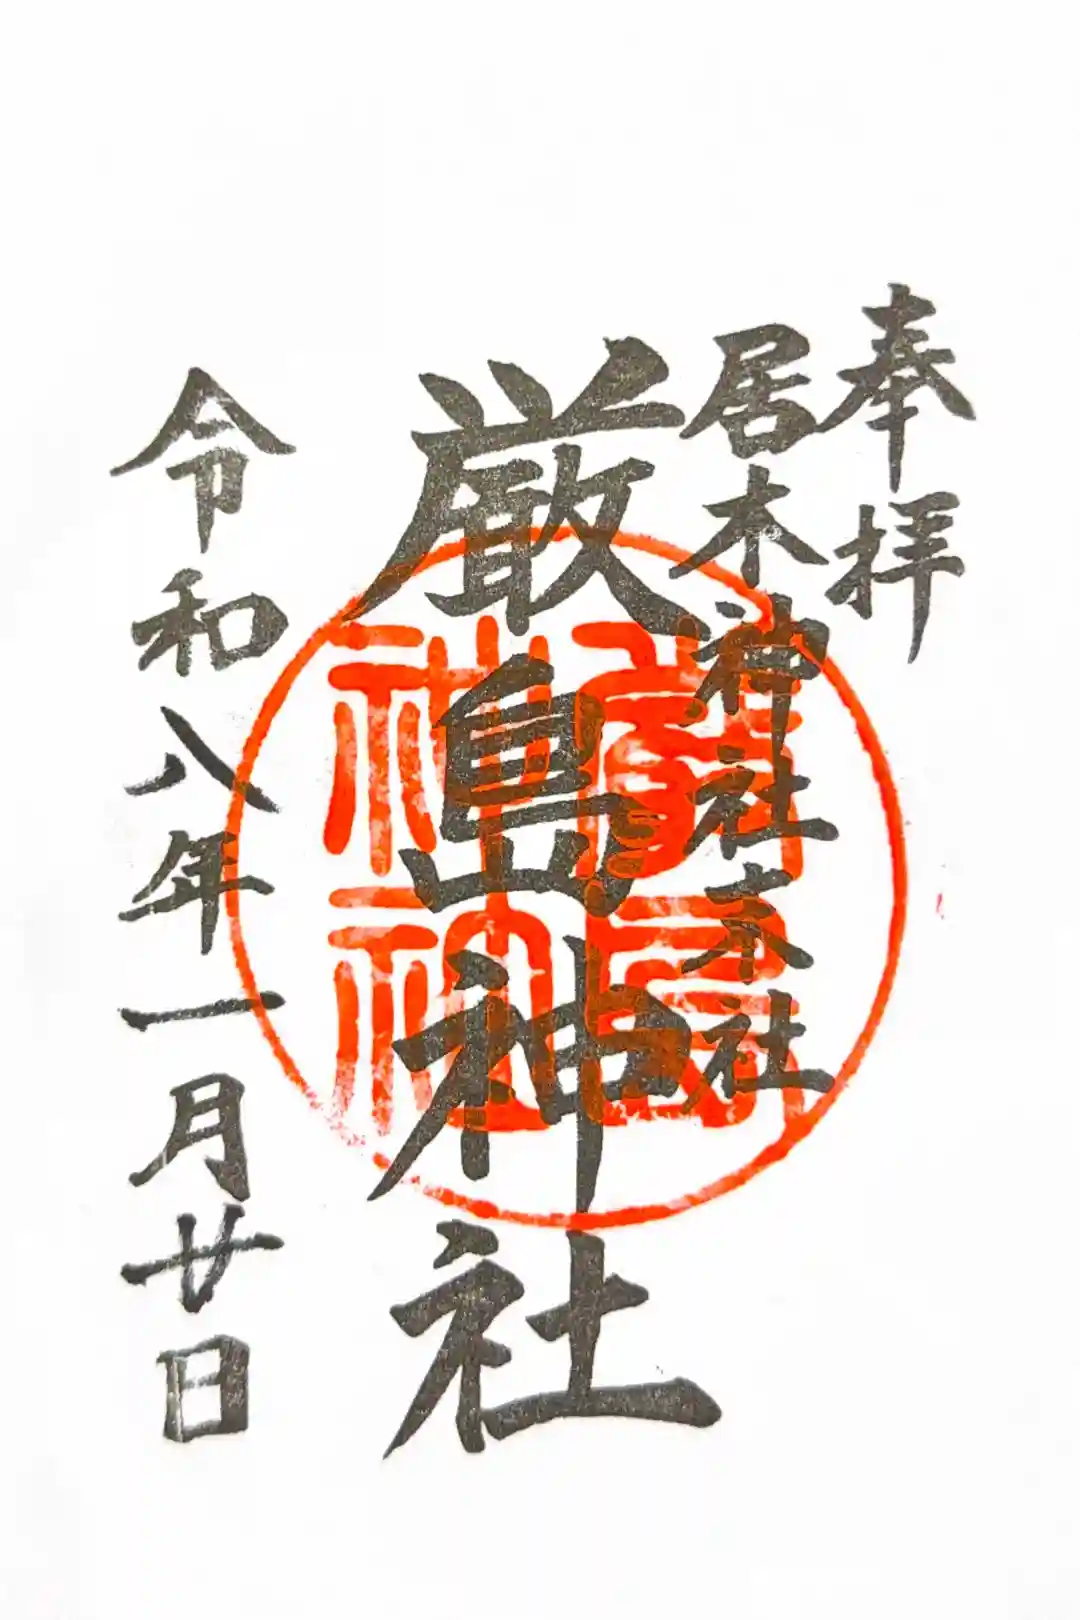 奉拝
居木神社末社
厳島神社
令和八年一月廿日